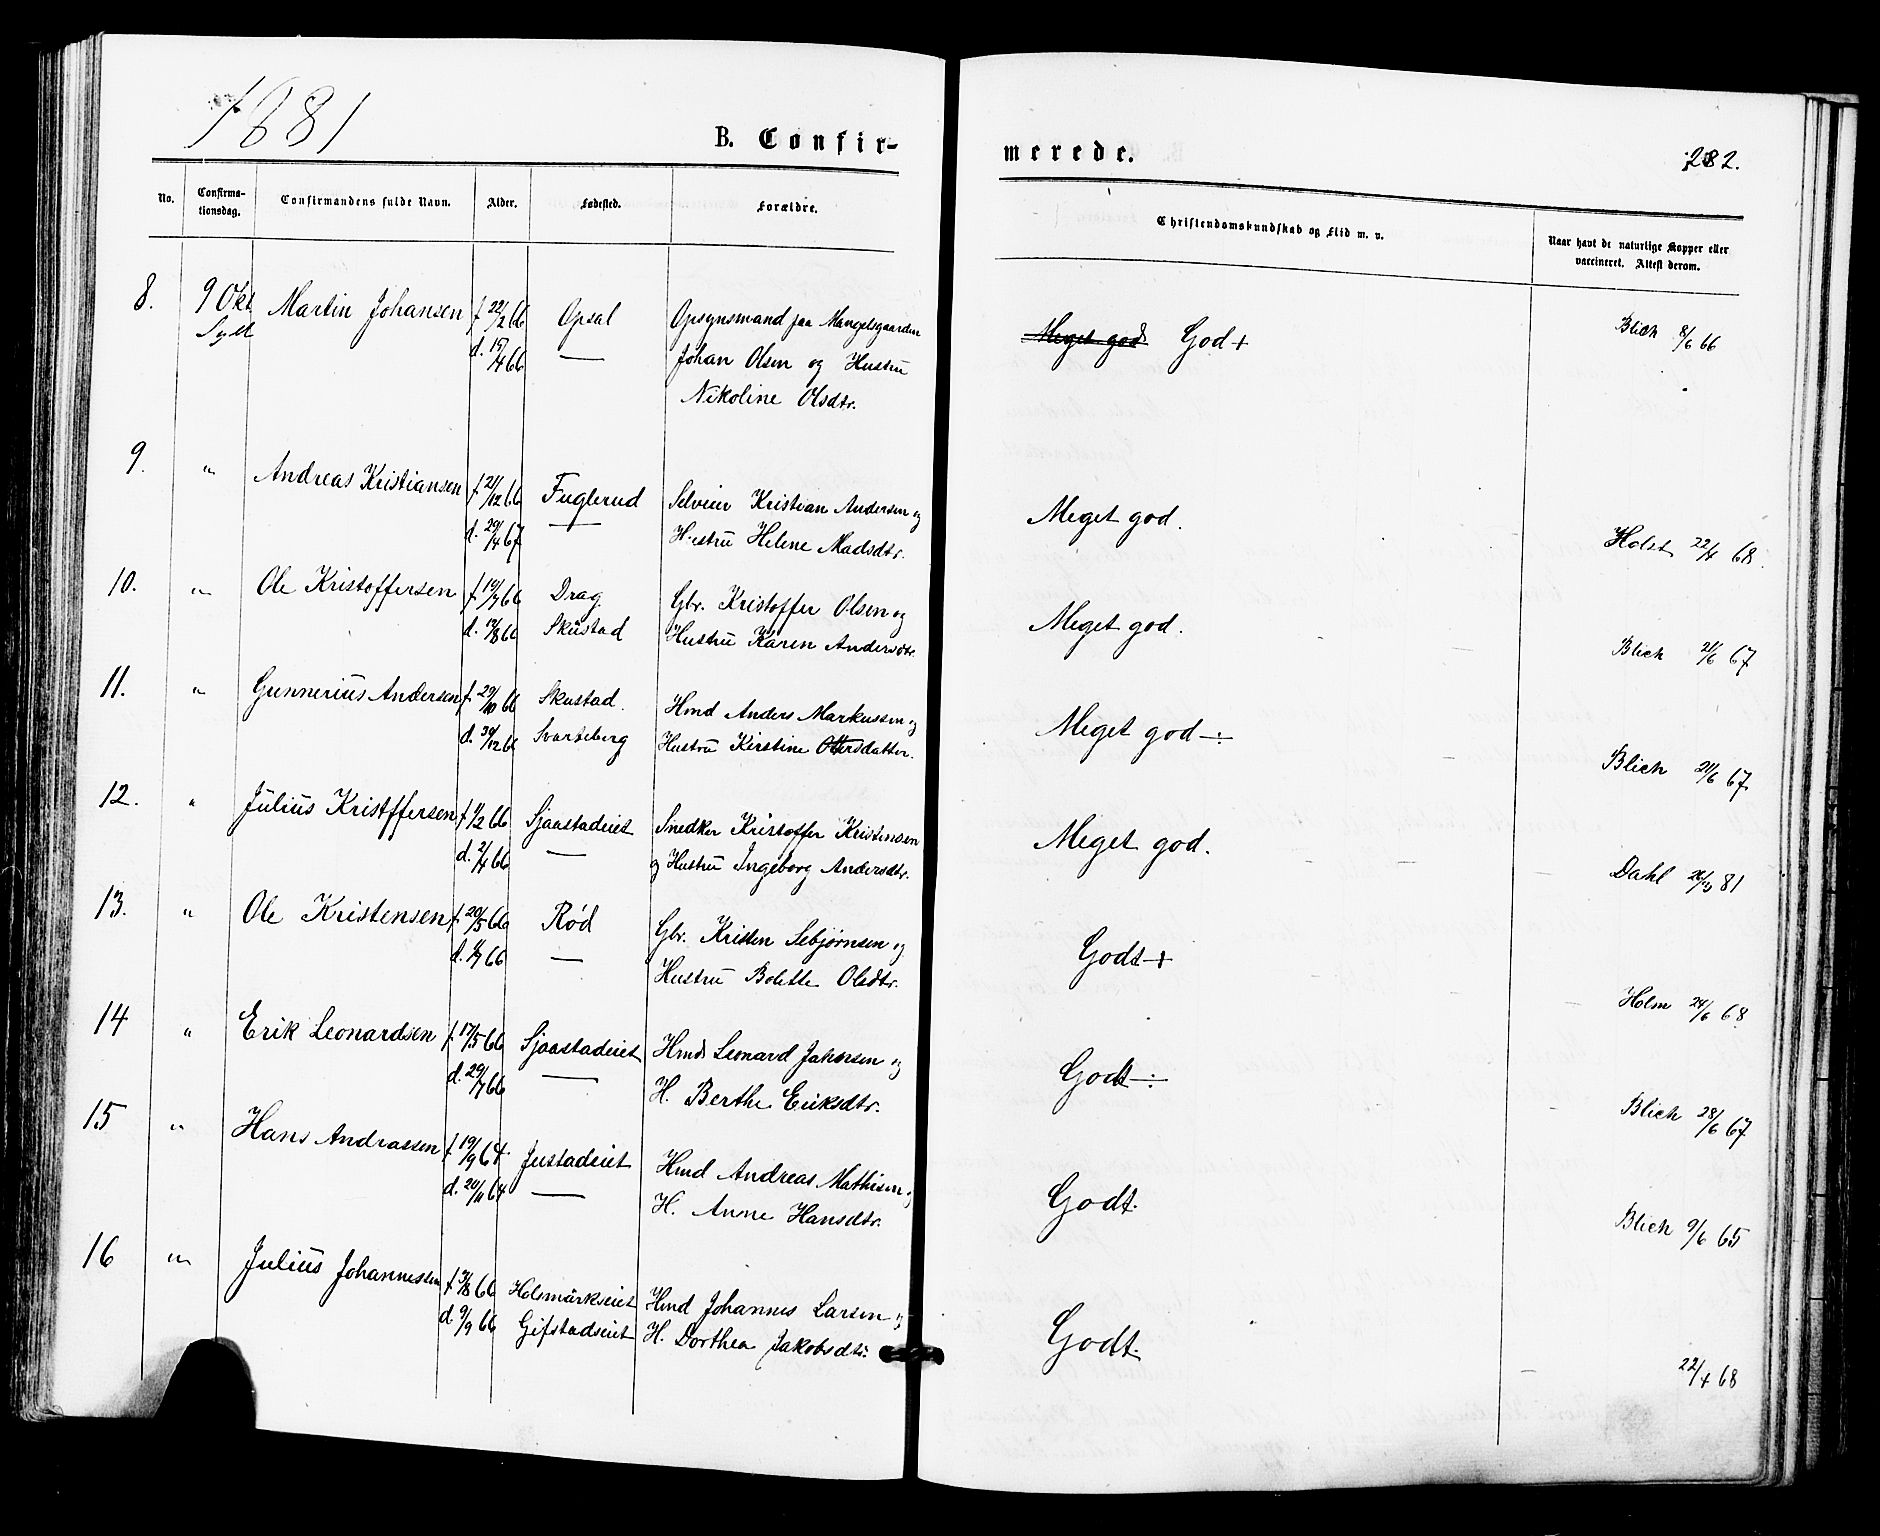 1881
B. Confir-
merede.
282.
No.
Confirma-
tionsdag.
Confirmandens fulde Navn.
Alder.
Fødested.
Forældre.
Christendomskundskab og Flid m. v.
Naar havt de naturlige Kopper eller
vaccineret. Attest derom.
8. 9 Okt Martin Johansen f 22/2 66 Opsal Opsynsmand paa Mangelsgaarden Meget god God + Blich 8/6 66
d. 15/4 66 — Johan Olsen og Hustru
Nikoline Olsdtr.
9. " Andreas Kristiansen f 21/12 66 Fuglerud Selveier Kristian Andersen og Meget god. Holst 22/4 68
d. 29/4 67 — Hustru Helene Madsdtr.
10. " Ole Kristoffersen f 19/7 66 Drag Gbr. Kristoffer Olsen og Meget god. Blich 21/6 67
d. 12/8 66 Skustad Hustru Karen Andersdtr.
11. " Gunnerius Andersen f. 29/10 66 Skustad. Hmd Anders Markussen og Meget god ÷ Blich 21/6 67
d. 30/12 66 Svarteberg Hustru Kirstine Ottersdatter.
12. " Julius Kristffersen f 11/2 66 Sjaastadeiet Snedker Kristoffer Kristensen Meget god. Dahl 81
d. 2/4 66 — og Hustru Ingeborg Andersdtr.
13. " Ole Kristensen f. 20/5 66 Rød Gbr. Kristen Sebjørnsen og Godt + Holm 24/6 68
d. 66 — Hustru Bolette Olsdtr.
14 " Erik Leonardsen f. 17/5 66 Sjaastadeiet Hmd Leonard Jahnsen og Godt ÷ Blich 28/6 67
d. 29/7 66 — H. Berthe Eriksdtr.
15 " Hans Andraasen f 19/9 64 Justadeiet Hmd Andreas Mathisen og Godt. Blich 9/6 65
d. 20/11 64 — H. Anne Hansdtr.
16 " Julius Johannessen f 3/8 66 Holsmarkseiet Hmd Johannes Larsen og Godt. 22/4 68
d 9/9 66 Gifstadseiet H. Dorthea Jakobsdtr.